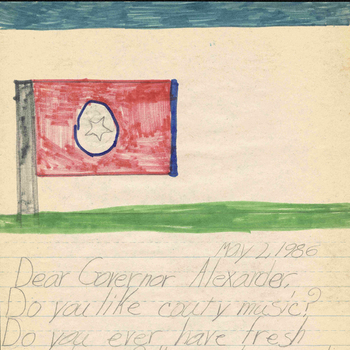 May 2, 1986
Dear Governor Alexander,
Do you like couty music?
Do you ever have fresh